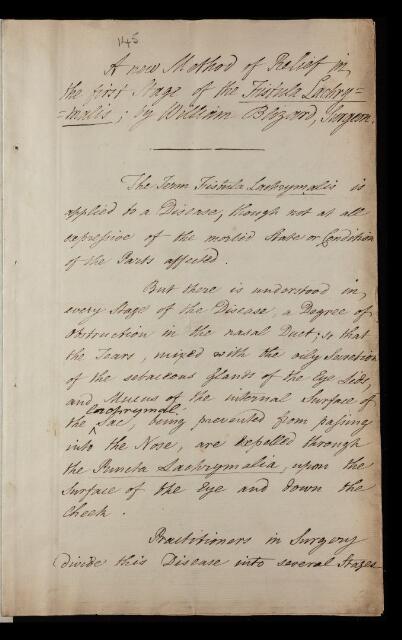 145
A new Method of Relief in
the first Stage of the Fistula Lachry=
=malis; by William Blizard, Surgeon.
The Term Fistula Lachrymalis is
applied to a Disease, though not at all
expressive of the morbid State or Condition
of the Parts affected.
But there is understood in
every Stage of the Disease, a Degree of
Obstruction in the nasal Duct; so that
the Tears, mixed with the oily Secretion
of the sebaceous glands of the Eye Lids,
and Mucus of the internal Surface of
lachrymal
the Sac, being prevented from passing
into the Nose, are repelled through
the Puncta Lachrymalia, upon the
Surface of the Eye and down the
Cheek.
Practitioners in Surgery
divide this Disease into several Stages